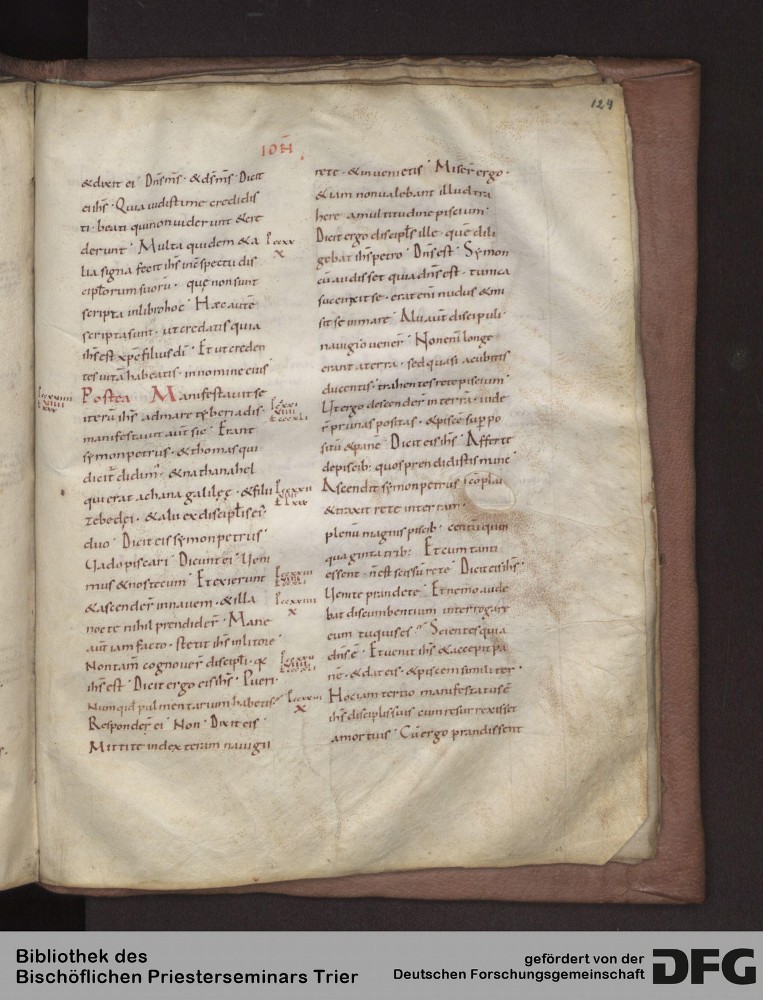 124
IOH
& dixit ei · Dn̄s m̄s · & d̄s m̄s · Dicit
ei ih̄s · Quia uidistime credidis
ti · beati qui non uiderunt & cre
derunt · Multa quidem & a
lia signa fecit ih̄s in c̄spectu dis
cipłorum suorū · que non sunt
scripta in libro hoc · Haec autē
scripta sunt · ut credatis quia
ih̄s est xp̄c filius dī · Et ut creden
tes uitā habeatis · in nomine eius
Postea Manifestauit se
iterū ih̄s ad mare tyberiadis ·
manifestauit aut̄ sic · Erant
symon petrus · & thomas qui
dicit̄ didim' · & nathanahel
qui erat a chana galileę · & filii
zebedęi · & alii ex discipłis ei'
duo · Dicit eis symon petrus
Uado piscari · Dicunt ei · Ueni
mus & nos tecum · Et exierunt
& ascender̄ in nauem · & illa
nocte nihil prendider̄ · Mane
aut̄ iam facto · stetit ih̄s in litore ·
Non tam̄ cognouer̄ discipłi · q̄
ih̄s est · Dicit ergo eis ih̄s · Pueri ·
Numquid pulmentarium habetis
Responder̄ ei · Non · Dixit eis ·
Mittite in dexteram nauigii
rete · & inuenietis · Miser̄ ergo ·
& iam non ualebant illud tra
here a multitudine piscium ·
Dicit ergo discipłs ille · quē dili
gebat ih̄s petro · Dn̄s est · Symon
cū audisset quia dn̄s est · tunica
succinxit se · erat enī nudus & mi
sit se in mare · Alii aut̄ discipuli ·
nauigio uener̄ · Non enī longe
erant a terra · sed quasi a cubitis
ducentis · trahentes rete piscium ·
Ut ergo descender̄ in terrā · uide
r̄ prunas positas · & piscē suppo
sitū & panē · Dicit eis ih̄s · Afferte
de piscib: quos prendidistis nunc ·
Ascendit symon petrus
& traxit rete in terram ·
plenū magnis piscib · centū quin
quaginta trib: · Et cum tanti
essent · n̄ est scissū rete · Dicit eis ih̄s ·
Uenite prandete · Et nemo aude
bat discumbentium interrogare
eum tu quis es · Scientes quia
dn̄s ē · Et uenit ih̄s & accepit pa
nē · & dat eis · & piscem similiter ·
Hoc iam tertio manifestatus ē
ih̄s discipłis suis cum resurrexisset
a mortuis · Cū ergo prandissent
Bibliothek des
Bischöflichen Priesterseminars Trier
gefördert von der
Deutschen Forschungsgemeinschaft
DFG